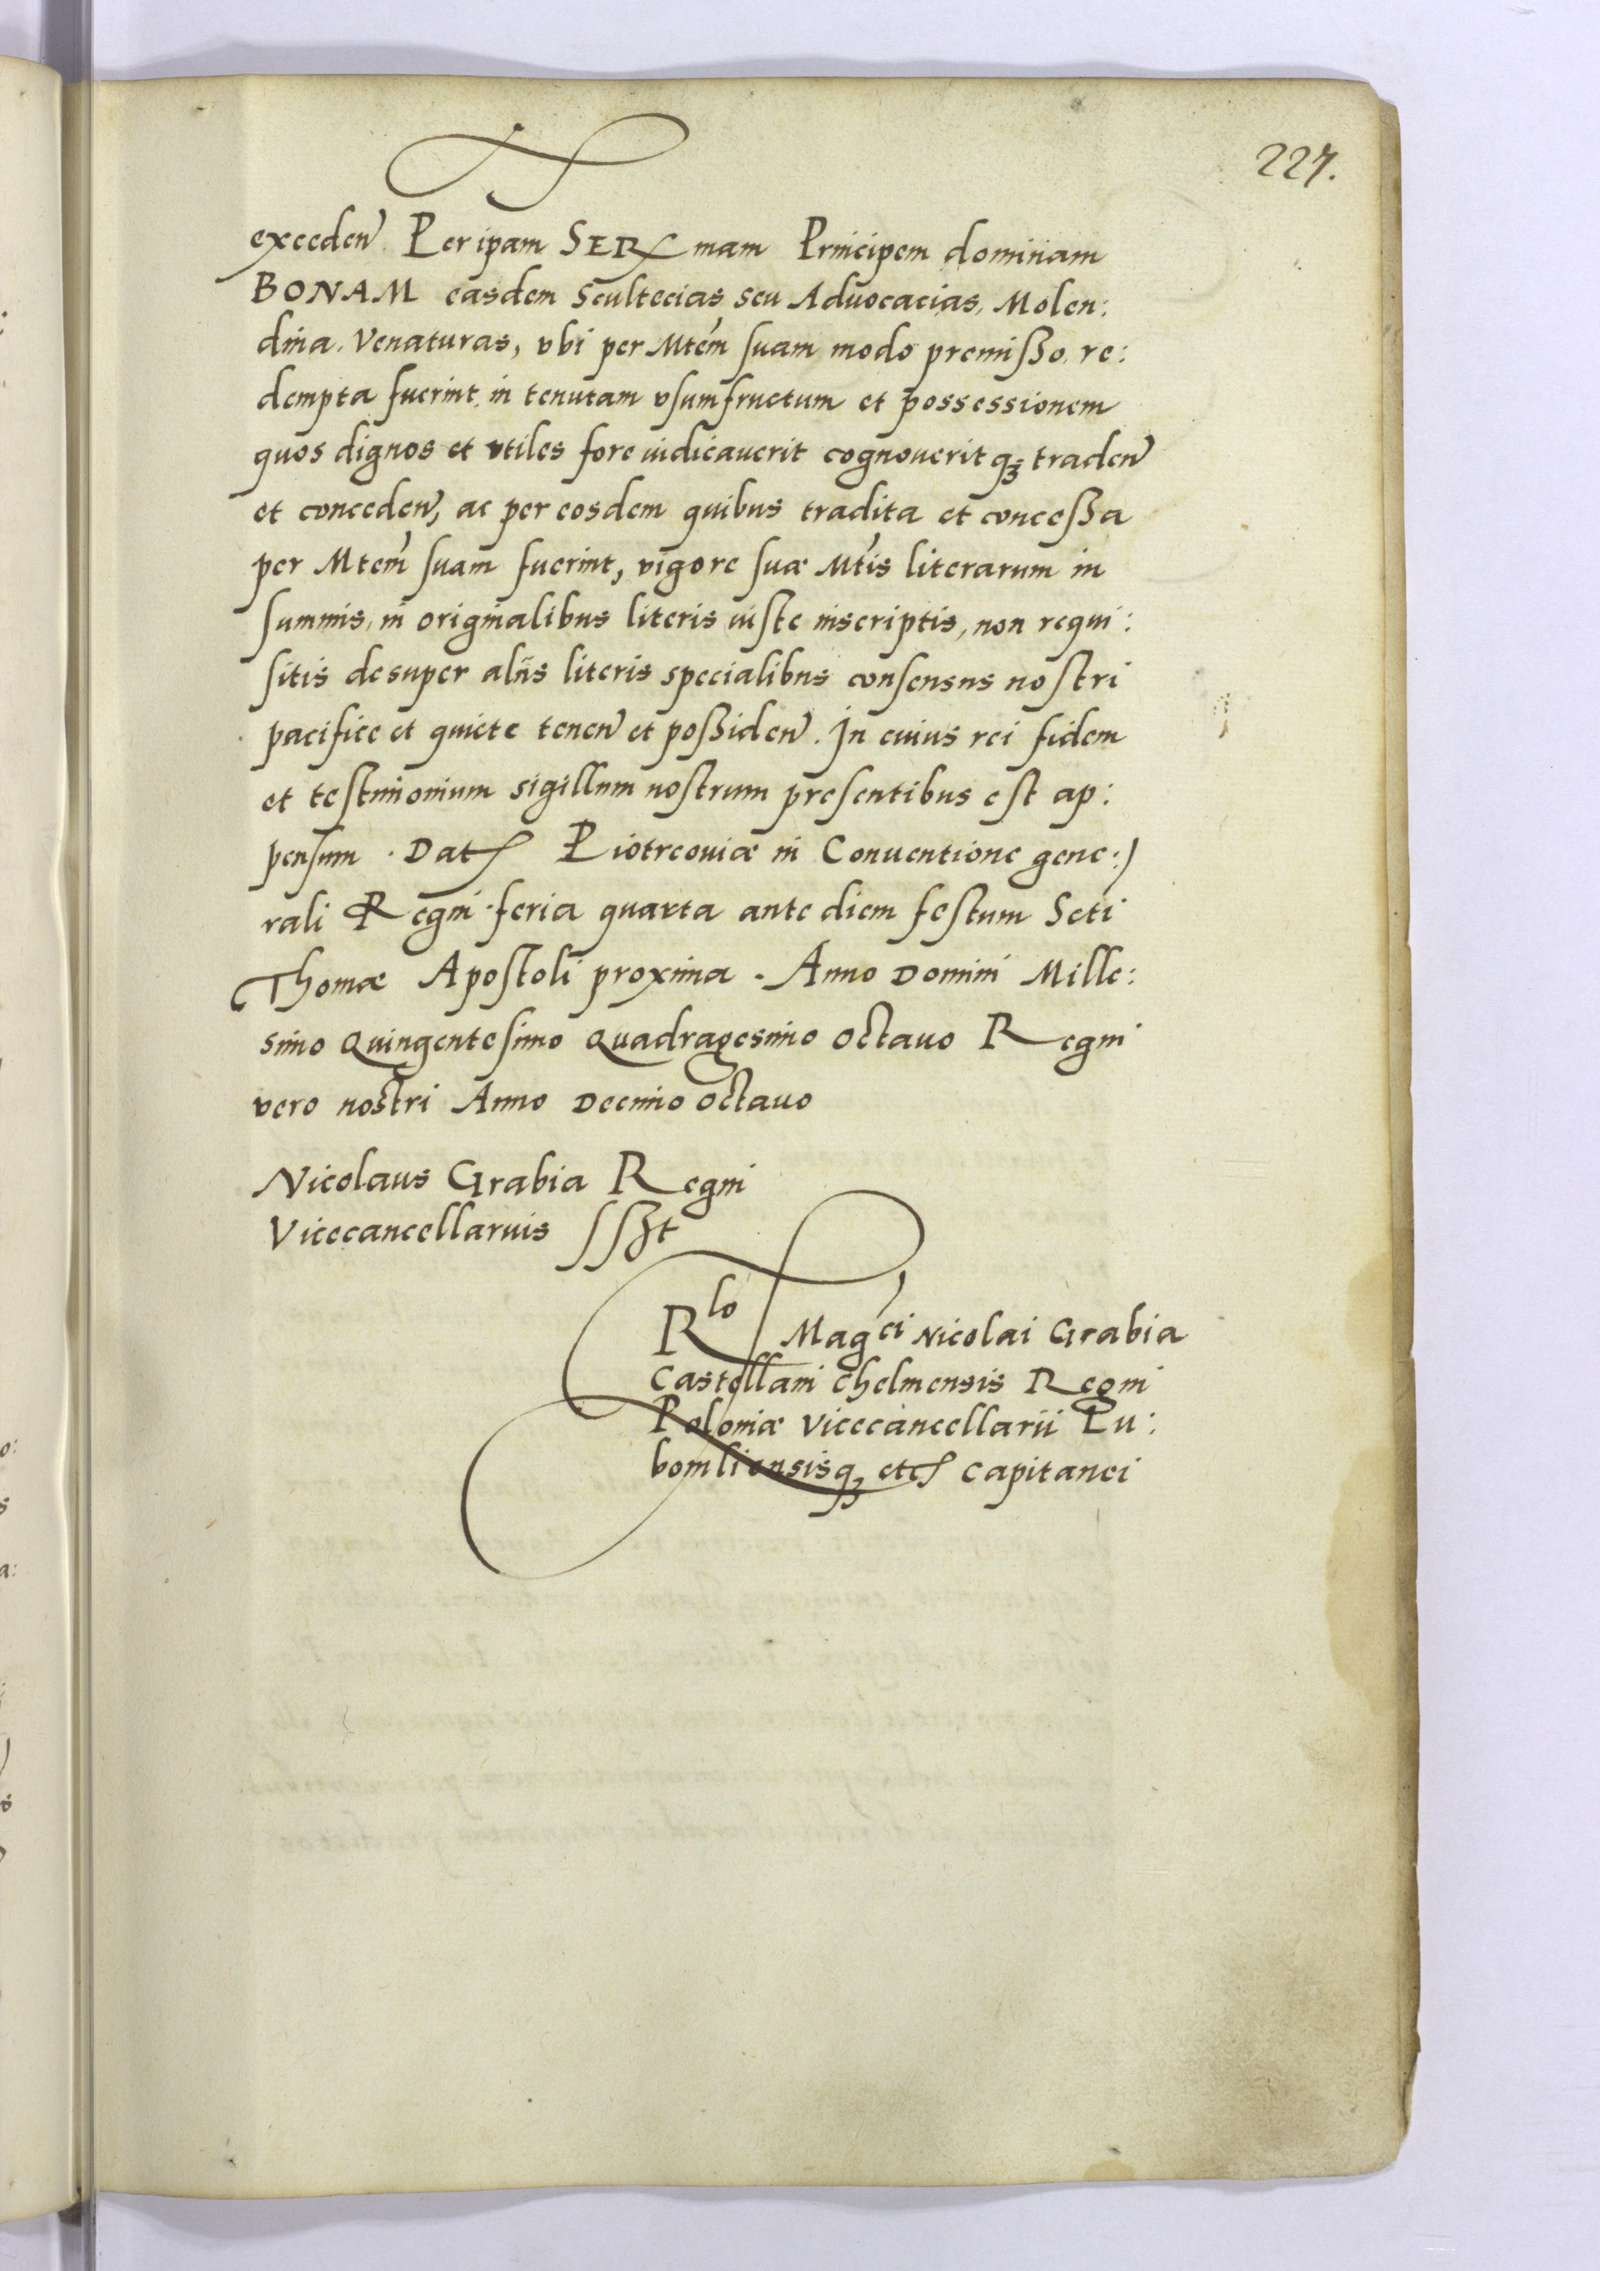 227.
exceden̄ Per ipam SERmam Principem dominam
BONAM easdem Scultecias seu Aduocacias, Molen:
dina, Venaturas, vbi per Mtem̄ suam modo premißo, re:
dempta fuerint, in tenutam vsumfructum et possessionem
quos dignos et vtiles fore iudicauerit cognoueritqꝫ traden̄
et conceden̄, ac per eosdem quibus tradita et conceßa
per Mtem̄ suam fuerint, vigore suæ Mtis̄ literarum in
summis, in originalibus literis iuste inscriptis, non requi:
sitis desuper alijs literis specialibus consensus nostri
pacifice et quiete tenen̄ et poßiden̄. In cuius rei fidem
et testimonium sigillum nostrum presentibus est ap:
pensum. Dat Piotrcouiæ in Conuentione gene:
rali Regni feria quarta ante diem festum Scti
Thomæ Apostoli proxima. Anno Domini Mille:
simo Quingentesimo Quadragesimo octauo Regni
vero nostri Anno Decimo octauo
Nicolaus Grabia Regni
Vicecancellarius sßt
Rlo Magci Nicolai Grabia
Castellani chelmensis Regni
Poloniæ vicecancellarii Lu:
bomliensisqꝫ etc Capitanei